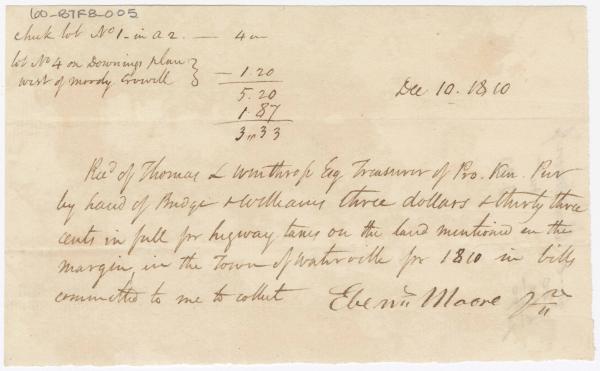 60-B7FB-005
check lot No 1 - in a 2. — 4 „
lot No 4 on Downings plan
west of Moody Crowell } — 1.20
5.20
1.87
3„33
Dec 10. 1810
Recd of Thomas L Winthrop Esq Treasurer of Pro. Ken. Pur
by hand of Bridge & Williams three dollars & thirty three
cents in full for higway taxes on the land mentioned in the
margin, in the Town of Waterville for 1810 in bills
committed to me to collect
Ebenr Moore Jre